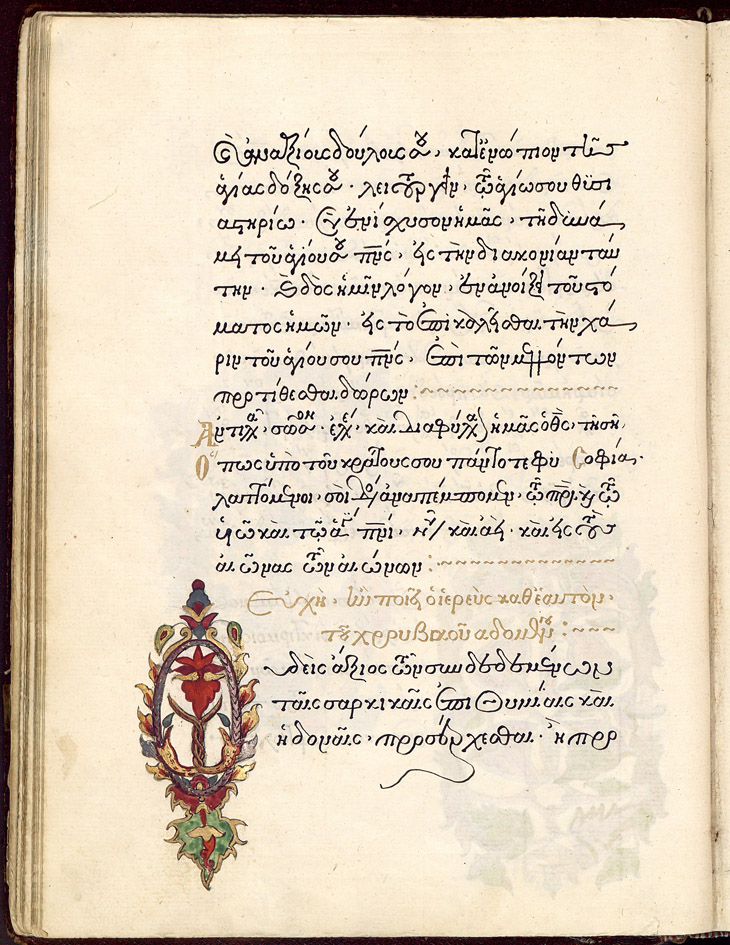 ἀναξίους δούλους σου, κατενώπιον τῆς
ἁγίας δόξης σου· λειτουργεῖν, τῷ ἁγίω σου θυσι
αστηρίω· σὺ ἐνίσχυσον ἡμᾶς, τῆ δυνά
μει τοῦ ἁγίου σου πνς, εἰς τὴν διακονίαν ταύ
την· καὶ δὸς ἡμῖν λόγον, ἐν ἀνοίξει τοῦ στό
ματος ἡμῶν· εἰς τὸ ἐπικαλεῖσθαι τὴν χά
ριν τοῦ ἁγίου σου πνς, ἐπὶ τῶν μελλόντων
προτίθεσθαι δώρων:
Ἀντιλ, σῶσον· ἐλέ, καὶ διαφύλα ἡμᾶς ὁ θς, τῆ σῆ,
Ὅπως ὑπὸ τοῦ κράτους σου πάντοτε φυ Σοφία,
λαττόμενοι, σοὶ δόξαν ἀναπέμπομεν, τῷ πρι καὶ τῷ
υἱῶ καὶ τῷ ἁγ πνι, νῦν καὶ ἀεὶ, καὶ εἰς τοὺς
αἰῶνας τῶν αἰώνων:
Εὐχὴ, ἣν ποιεῖ ὁ ἱερεὺς καθ' ἑαυτὸν,
τοῦ χερυβικοῦ ἀδομένου:
Οὐδεὶς ἄξιος τῶν συνδεδεμένων
ταῖς σαρκικαῖς ἐπιθυμίαις καὶ
ἡδοναῖς, προσέρχεσθαι· ἢ προ